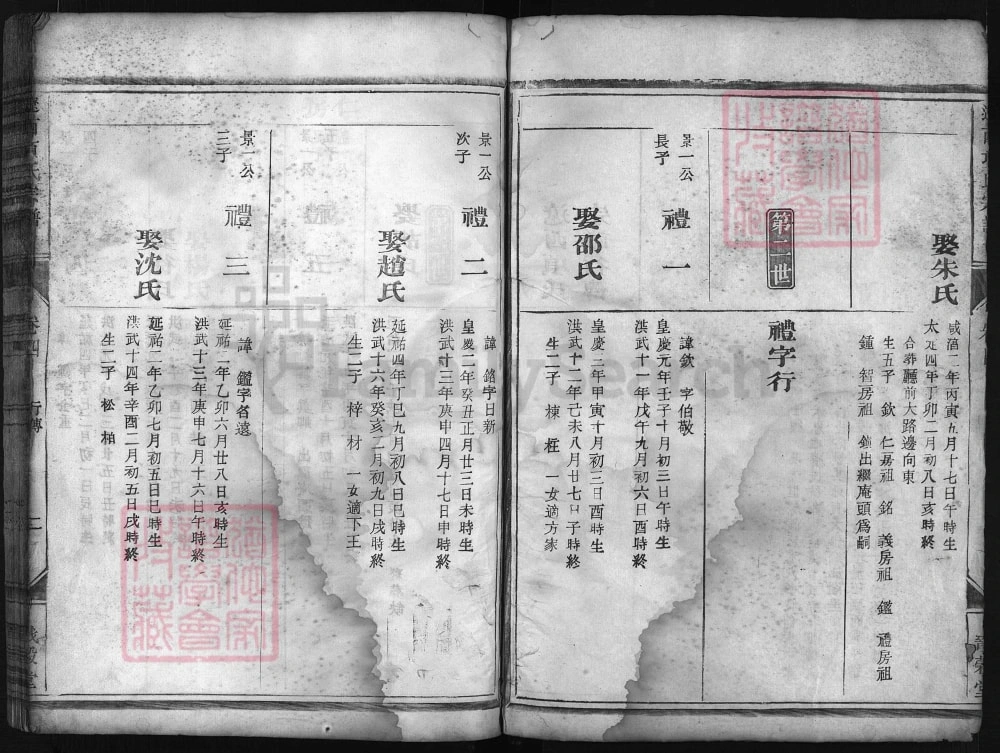 娶朱氏
咸淳二年丙寅九月十七日午時生
太定四年丁卯二月初八日亥時終
合葬廳前大路邊向東
生五子 欽 仁房祖 銘 義房祖 鑑 禮房祖
鍾 智房祖 鏞出繼庵頭爲嗣
第二世
禮字行
景一公
長子
禮一
諱欽 字伯敬
皇慶元年壬子十月初三日午時生
洪武十一年戊午九月初六日酉時終
娶邵氏
皇慶二年甲寅十月初三日酉時生
洪武十二年己未八月廿七日子時終
生二子 棟 枉 一女適方家
景一公
次子
禮二
諱 銘字日新
皇慶二年癸丑正月廿三日未時生
洪武十三年庚申四月十七日申時終
娶趙氏
延祐四年丁巳九月初八日巳時生
洪武十六年癸亥二月初九日戌時終
生二子 梓 材 一女適下王
景一公
三子
禮三
諱 鑑字省遠
延祐二年乙卯六月廿八日亥時生
洪武十三年庚申七月十六日午時終
娶沈氏
延祐二年乙卯七月初五日巳時生
洪武十四年辛酉二月初五日戌時終
生二子 松 柏
卷四
行傳
二